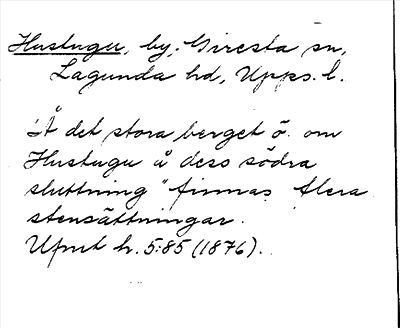 Hustugu, by, Giresta sn,
Lagunda hd, Upps. l.
"Å det stora berget ö. om
Hustugu å dess södra
sluttning" finnas flera
stensättningar.
Upmt h. 5:85 (1876).